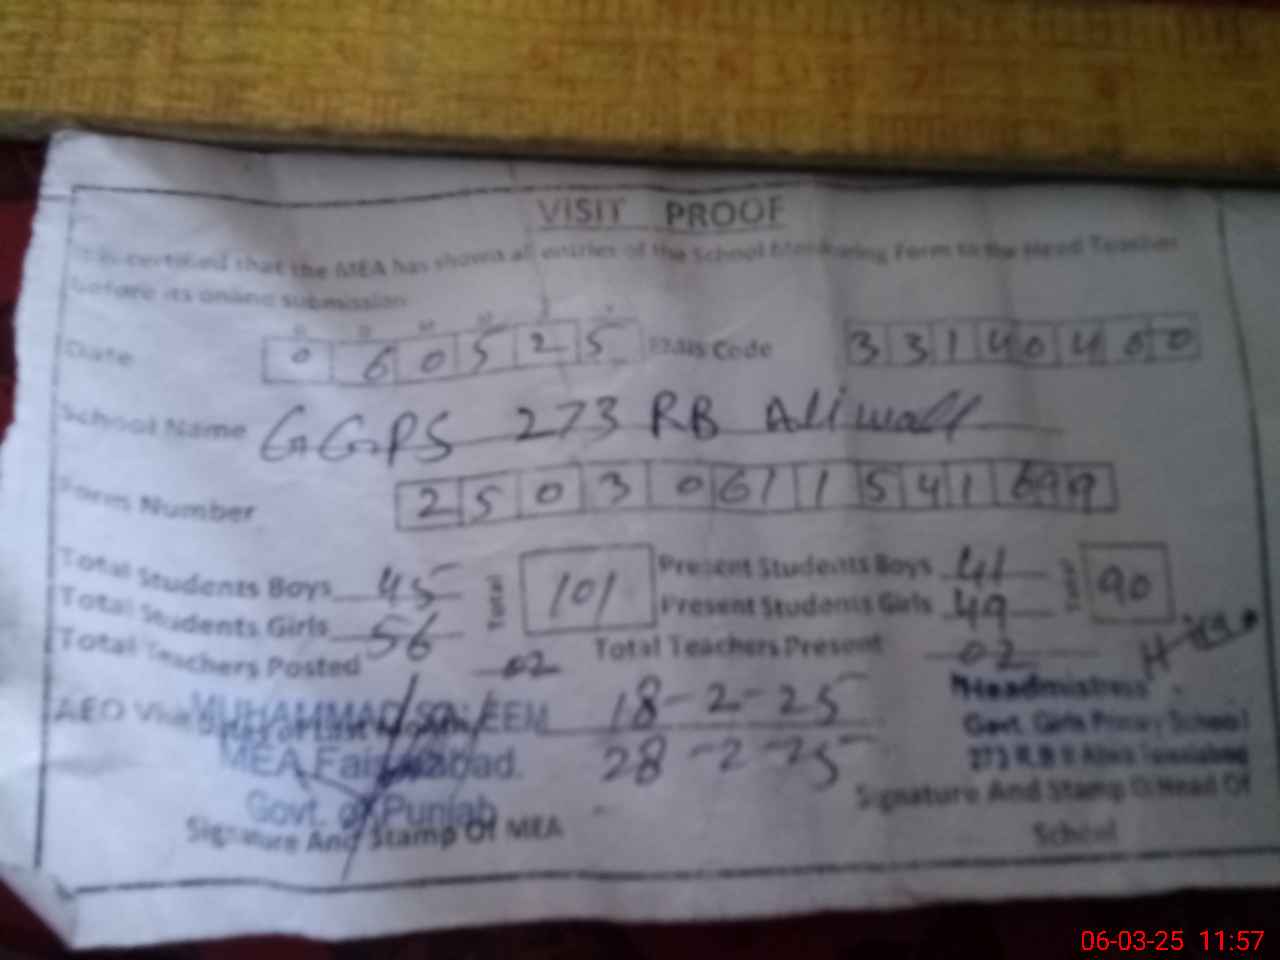 VISIT PROOF
It is certified that the MEA has shown all entries of the School Monitoring Form to the Head Teacher
before its online submission
Date 0 6 0 5 2 5 EMIS Code 3 3 1 4 0 4 0 0
School Name GGPS 273 RB Aliwall
Form Number 2 5 0 3 0 6 1 1 5 4 1 6 9 9
Total Students Boys 45 Total 101 Present Students Boys 41 Total 90
Total Students Girls 56 Present Students Girls 49
Total Teachers Posted 02 Total Teachers Present 02
AEO MUHAMMAD 18-2-25 Headmistress
MEA Faisalabad. 28-2-25 Govt. Girls Primary School
Govt. of Punjab 273 R.B
Signature And Stamp Of MEA Signature And Stamp Of Head Of
School
06-03-25 11:57